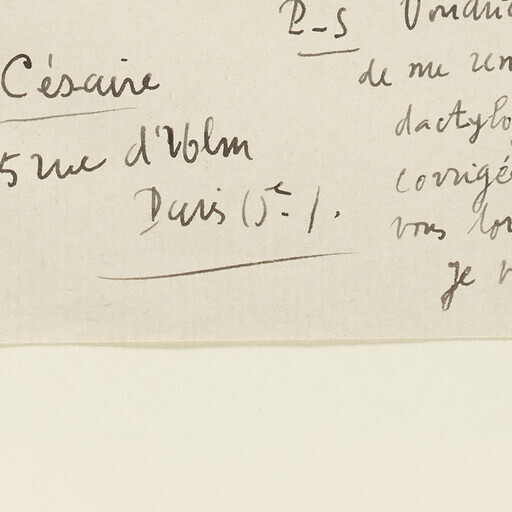 Césaire
5 rue d'Ulm
Paris (5e.).
P-S Voudri
de me ren
dactylo
corrigé
vous
je v